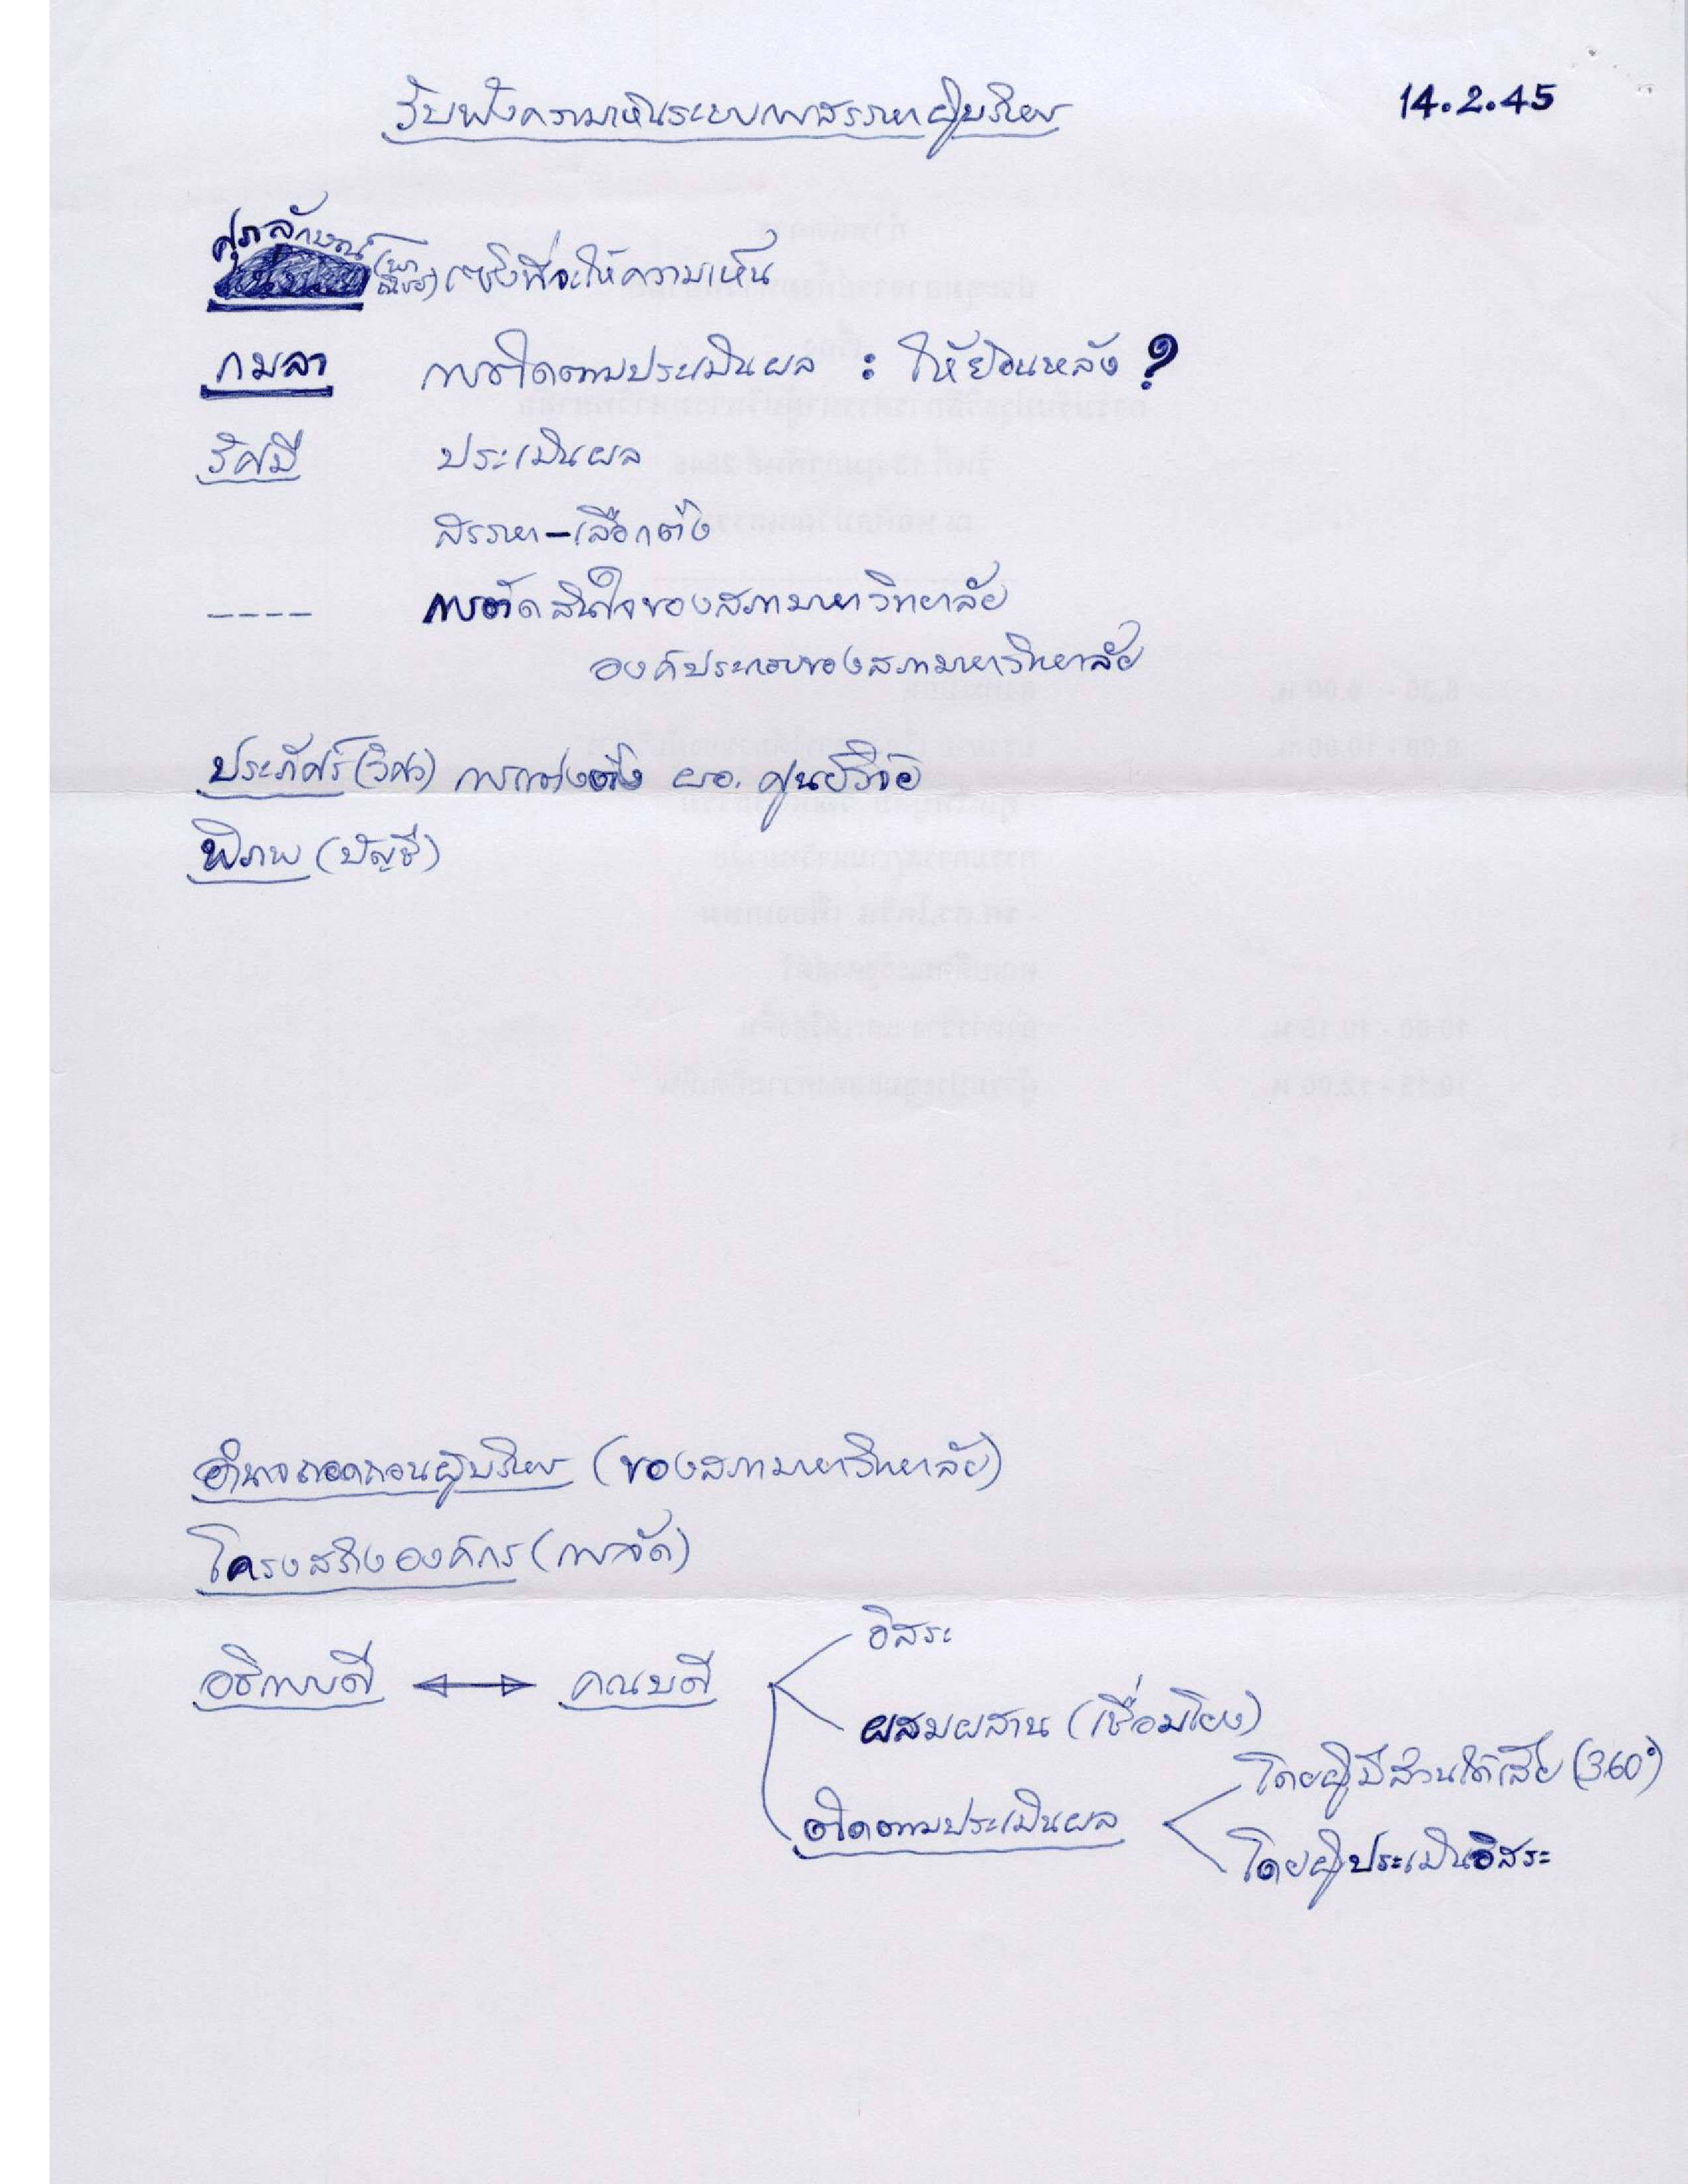 รับฟังความเห็นระบบการสรรหาผู้บริหาร
14.2.45
ศุภลักษณ์ ที่จะให้ความเห็น
กมลา การติดตามประเมินผล : ให้ย้อนหลัง ?
รัศมี ประเมินผล
สรรหา-เลือกตั้ง
---- การตัดสินใจของสภามหาวิทยาลัย
องค์ประกอบของสภามหาวิทยาลัย
ประภัศร์ (วิศว) การแต่งตั้ง ผอ. ศูนย์วิจัย
พิภพ (บัญชี)
อำนาจถอดถอนผู้บริหาร (ของสภามหาวิทยาลัย)
โครงสร้างองค์กร (การจัด)
อธิการบดี ↔ คณบดี
อิสระ
ผสมผสาน (เชื่อมโยง)
ติดตามประเมินผล
โดยผู้มีส่วนได้เสีย (360°)
โดยผู้ประเมินอิสระ